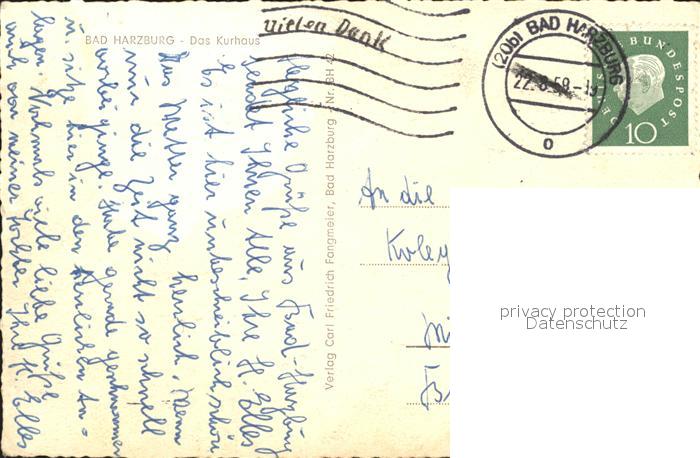 BAD HARZBURG - Das Kurhaus
Vielen Dank
(20b) BAD HARZBURG
22.8.59.-19
o
DEUTSCHE BUNDESPOST
10
Herzliche Grüße aus Bad-Harzburg
sendet Ihnen Alle, Ihr H. Elles
Es ist hier unbeschreiblich schön
Das Wetter ganz herrlich, wenn
nur die Zeit nicht so schnell
vorbei ginge. Habe gerade geschwommen
u. sitze hier in den herrlichen An-
lagen. Nochmals viele liebe Grüße
auch von meiner Tochter, Ihr H. Elles
Verlag Carl Friedrich Fangmeier, Bad Harzburg Nr. BH 42
An die
privacy protection
Datenschutz